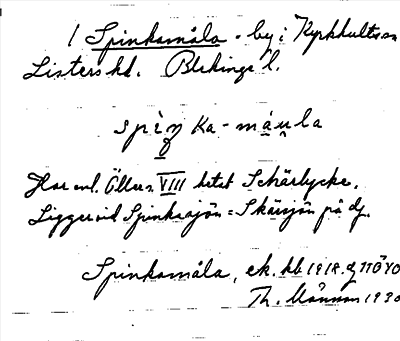 1 Spinkamåla - by i Kyrkhults sn
Listers hd. Blekinge l.
spìŋka-måu̯la
Har enl. Öller s. VIII hetat Schärlycke.
Ligger vid Spinkasjön = Skärsjön på dj.
Spinkamåla, ek. kb. 1918.
Th. Månsson 1930